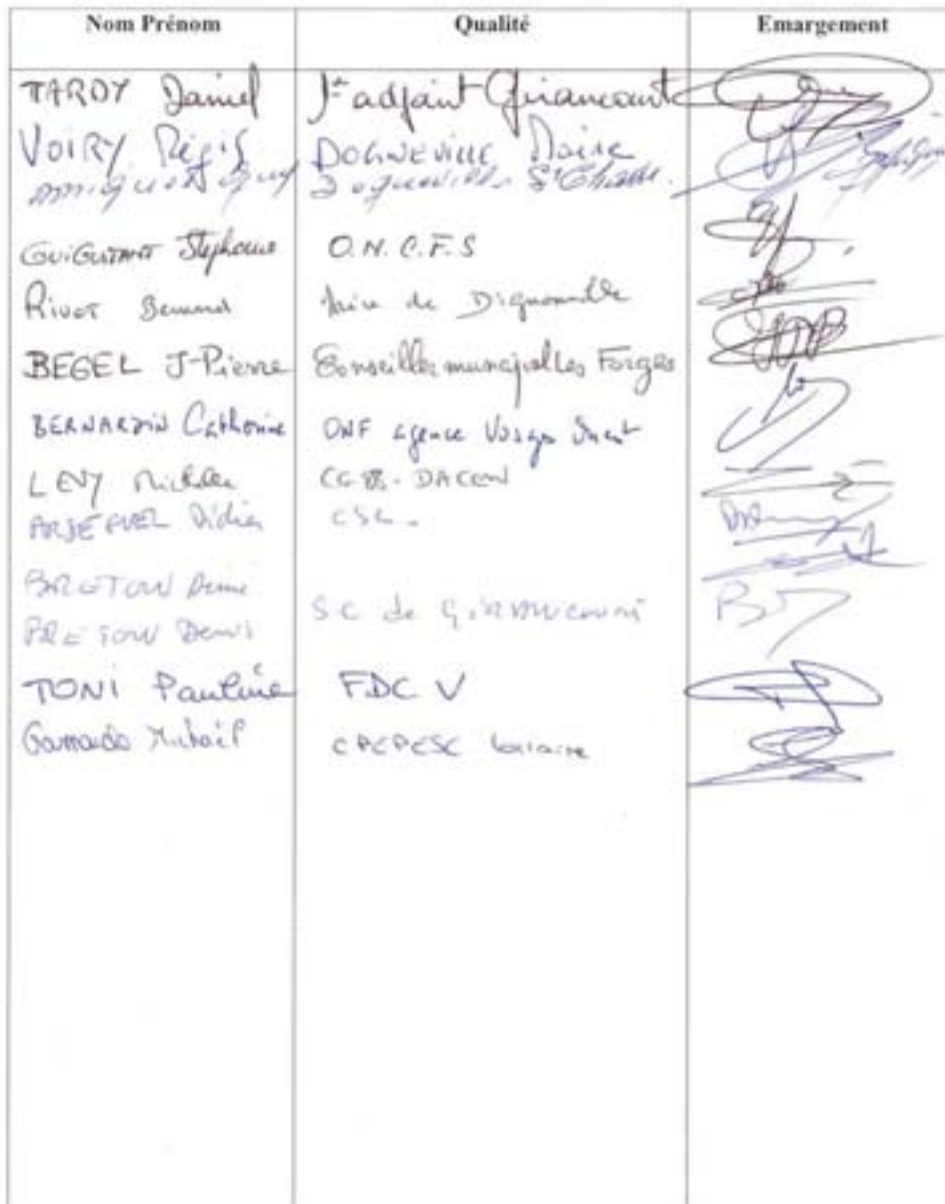 Nom Prénom Qualité Emargement
TARDY Daniel 1er adjoint Girancourt
VOIRY Régis DOGNEVILLE Maire
GUIGUITANT Stéphanie O.N.C.F.S
RIVOT Bernard Maire de Dignonville
BEGEL J-Pierre Conseiller municipal les Forges
BERNARDIN Catherine ONF agence Vosges Ouest
LEVY Michelle CG 88 - DACEN
Didier CSL.
BRETON Denis
BRETON Denis SC de Girancourt
TONI Pauline FDC V
Gamada Mikaël CPEPESC Lorraine